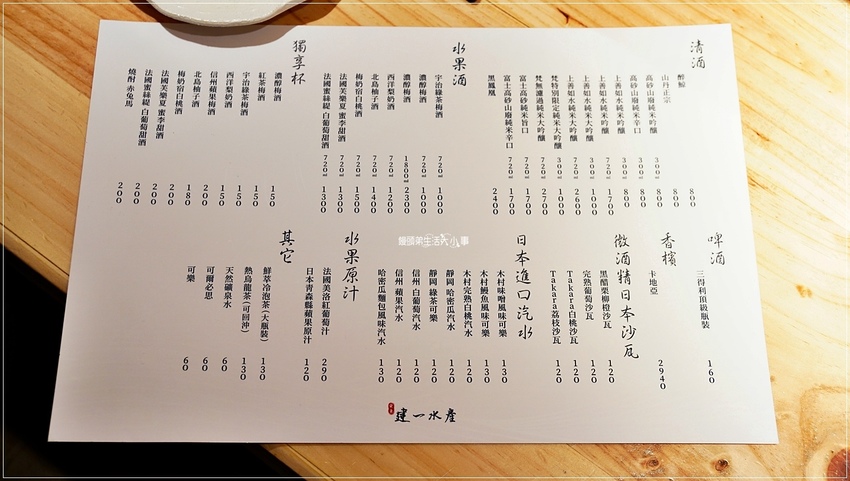 清酒
醉鯨 800
山丹正宗 800
高砂山廢純米吟釀 300ml 800
高砂山廢純米辛口 300ml 800
上善如水純米吟釀 300ml 800
上善如水純米吟釀 720ml 1700
上善如水純米大吟釀 300ml 1000
上善如水純米大吟釀 720ml 2600
梵特別限定純米大吟釀 300ml 1000
梵無濾過純米大吟釀 720ml 2700
富士高砂純米旨口 720ml 1700
富士高砂山廢純米辛口 720ml 1700
黑鳳凰 2400
水果酒
宇治綠茶梅酒 720ml 1000
濃醇梅酒 720ml 1000
濃醇梅酒 1800ml 2300
西洋梨奶酒 720ml 1200
北島柚子酒 720ml 1400
梅奶宿白桃酒 720ml 1500
法國美樂夏 蜜李甜酒 720ml 1300
法國蜜絲緹 白葡萄甜酒 720ml 1300
獨享杯
濃醇梅酒 150
紅茶梅酒 150
宇治綠茶梅酒 150
西洋梨奶酒 150
信州蘋果梅酒 200
北島柚子酒 150
梅奶宿白桃酒 180
法國美樂夏 蜜李甜酒 200
法國蜜絲緹 白葡萄甜酒 200
燒酎 赤兔馬 200
啤酒
三得利頂級瓶裝 160
香檳
卡地亞 2940
微酒精日本沙瓦
黑醋栗柳橙沙瓦 120
完熟葡萄沙瓦 120
Takara白桃沙瓦 120
Takara荔枝沙瓦 120
日本進口汽水
木村味噌風味可樂 130
木村鰻魚風味可樂 130
木村完熟白桃汽水 120
靜岡 哈密瓜汽水 120
靜岡 綠茶可樂 120
信州 白葡萄汽水 120
信州 蘋果汽水 120
哈密瓜麵包風味汽水 130
水果原汁
法國美洛紅葡萄汁 290
日本青森縣蘋果原汁 120
其它
鮮萃冷泡茶(大瓶裝) 130
熱烏龍茶(可回沖) 130
天然礦泉水 60
可爾必思 60
可樂 60
饅頭弟生活大小事
建一水產